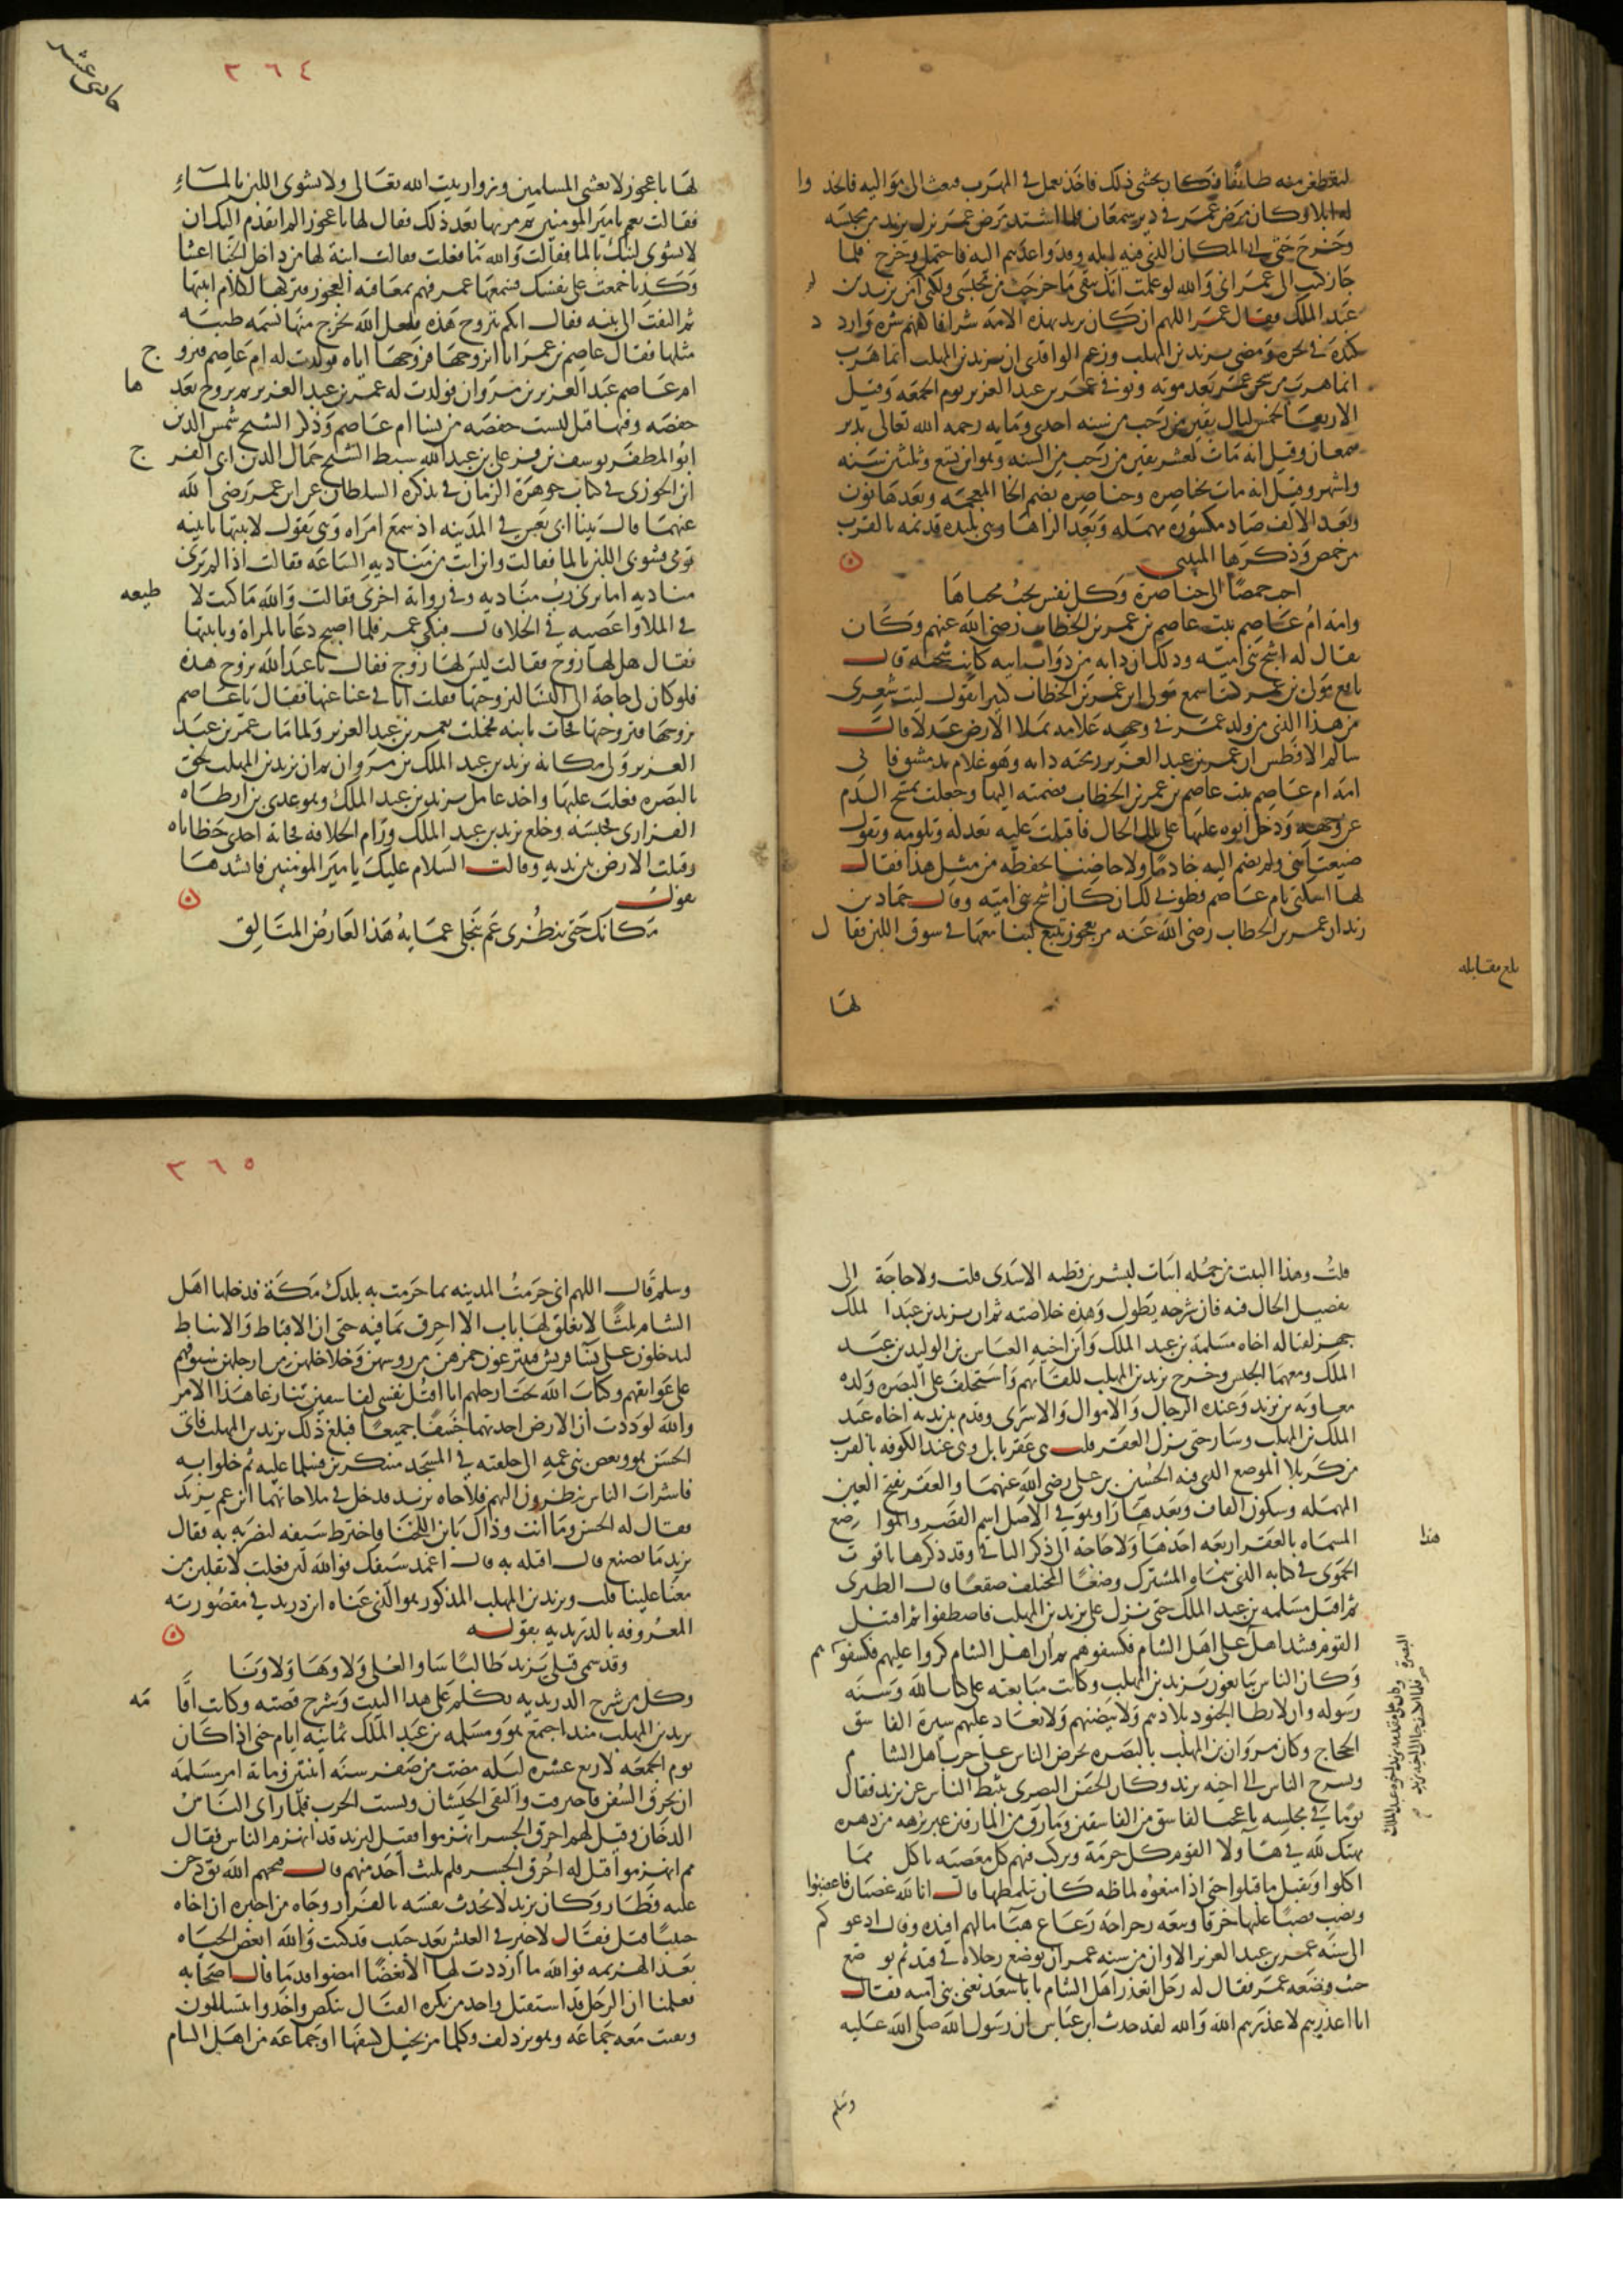 ليقطعن منه طابقا فكان يخشى ذلك فاخذ يعمل في الهرب فبعث الى مواليه فاعد وا
له ابلا وكان مرض عمر في دير سمعان فلما اشتد مرض عمر نزل يزيد من محبسه
وخرج حتى اتى المكان الذي فيه ابله وقد واعدهم اليه فاحتمل وخرج فلما
جاز كتب الى عمر اني والله لو علمت انك تبقى ما خرجت من محبسي ولكني لم آمن يزيد بن
عبد الملك فقال عمر اللهم ان كان يريد بهذه الامة شرا فاكفهم شره واردد
كيده في نحره ومضى يزيد بن المهلب وزعم الواقدي ان يزيد بن المهلب انما هرب
انما هرب من سجن عمر بعد موته وتوفي عمر بن عبد العزيز يوم الجمعة وقيل
الاربعا لخمس ليال بقين من رجب من سنه احدى ومايه رحمه الله تعالى بدير
سمعان وقيل انه مات لعشر بقين من رجب من السنه وهو ابن تسع وثلثين سنه
واشهر وقيل انه مات بخناصره وخناصره بضم الخا المعجمه وبعدها نون
وبعد الالف صاد مكسوره مهمله وبعد الراها وهي بليده قديمه بالقرب
من حمص وذكرها المتنبي
احب حمصا الى خناصرة وكل نفس تحب محياها
وامه ام عاصم بنت عاصم بن عمر بن الخطاب رضي الله عنهم وكان
يقال له اشج بني اميه وذلك ان دابه من دواب ابيه كانت شجته قال
نافع مولى ابن عمر كنت اسمع مولاي ابن عمر بن الخطاب كثيرا يقول ليت شعري
من هذا الذي من ولد عمر في وجهه علامه يملا الارض عدلا قال
سالم الافطس ان عمر بن عبد العزيز رمحته دابه وهو غلام بدمشق فاتى
امه ام عاصم بنت عاصم بن عمر بن الخطاب فضمته اليها وجعلت تمسح الدم
عن وجهه ودخل ابوه عليها على تلك الحال فاقبلت عليه تعذله وتلومه وتقول
ضيعت ابني ولم تضم اليه خادما ولا حاضنا يحفظه من مثل هذا فقال
لها اسكتي يا ام عاصم فطوبى لك ان كان اشج بني اميه وقال حماد بن
زيد ان عمر بن الخطاب رضي الله عنه مر بعجوز تبيع لبنا معها في سوق اللبن فقال
بلغ مقابله
لها
حادي عشر
٣٦٤
لها يا عجوز لا تغشي المسلمين وزوار بيت الله تعالى ولا تشوبي اللبن بالماء
فقالت نعم يا امير المومنين ثم مر بها بعد ذلك فقال لها يا عجوز الم اتقدم اليك ان
لا تشوبي لبنك بالما فقالت والله ما فعلت فقالت ابنة لها من داخل الخبا اغشا
وكذبا جمعت على نفسك فسمعها عمر فهم بمعاقبه العجوز فتركها لكلام ابنتها
ثم التفت الى بنيه فقال ايكم يتزوج هذه فلعل الله يخرج منها نسمه طيبه
مثلها فقال عاصم بن عمر انا اتزوجها فزوجها اياه فولدت له ام عاصم فتزوج
ام عاصم عبد العزيز بن مروان فولدت له عمر بن عبد العزيز ثم تزوج بعدها
حفصه وفيها قيل ليست حفصه من نسا ام عاصم وذكر الشيخ شمس الدين
ابو المظفر يوسف بن قزغلي بن عبد الله سبط الشيخ جمال الدين ابي الفرج
ابن الجوزي في كتاب جوهرة الزمان في تذكره السلطان عن ابن عمر رضي الله
عنهما قال بينا ابي يعس في المدينه اذ سمع امراه وهي تقول لابنتها يا بنيه
قومي فشوبي اللبن بالما فقالت منادي الساعه فقالت اذا لم يرني
مناديه اما يرى رب مناديه وفي رواية اخرى فقالت والله ما كنت لاطيعه
في الملا واعصيه في الخلا قال فبكى عمر فلما اصبح دعا بالمراة وبابنتها
فقال هل لها زوج فقالت ليس لها زوج فقال يا عبد الله تزوج هذه
فلو كان لي حاجة الى النسا لتزوجتها فقلت انا في غنا عنها فقال يا عاصم
تزوجها فتزوجها فجات بابنه فحملت بعمر بن عبد العزيز ولما مات عمر بن عبد
العزيز ولي مكانه يزيد بن عبد الملك بن مروان ثم ان يزيد بن المهلب لحق
بالبصره فغلب عليها واخذ عامل يزيد بن عبد الملك وهو عدي بن ارطاه
الفزاري فحبسه وخلع يزيد بن عبد الملك ورام الخلافه فجاته احدى حظاياه
وقبلت الارض بين يديه وقالت السلام عليك يا امير المومنين فانشدها
يقول
مكانك حتى تنظري عم تنجلي عماية هذا العارض المتالق
قلت وهذا البيت من جمله ابيات لبشر بن قطيه الاسدي قلت ولا حاجة الى
تفصيل الحال فيه فان شرحه يطول وهذه خلاصته ثم ان يزيد بن عبد الملك
جهز لقتاله اخاه مسلمة بن عبد الملك وابن اخيه العباس بن الوليد بن عبد
الملك ومعهما الجيش وخرج يزيد بن المهلب للقائهم واستخلف على البصره ولده
معاويه بن يزيد وعنده الرجال والاموال والاسرى وقدم بين يديه اخاه عبد
الملك بن المهلب وسار حتى نزل العقر قلت هي عقر بابل وهي عند الكوفه بالقرب
من كربلا الموضع الذي قتل فيه الحسين بن علي رضي الله عنهما والعقر بفتح العين
المهمله وسكون القاف وبعدها را وهو في الاصل اسم القصر والمواضع
المسماه بالعقر اربعه احدها هذا ولا حاجة الى ذكر الباقي وقد ذكرها ياقوت
الحموي في كتابه الذي سماه المشترك وضعا المختلف صقعا قال الطبري
ثم اقبل مسلمه بن عبد الملك حتى نزل على يزيد بن المهلب فاصطفوا ثم اقتتل
القوم فشد اهل البصرة على اهل الشام فكشفوهم ثم ان اهل الشام كروا عليهم فكشفوهم
وكان الناس يبايعون يزيد بن المهلب وكانت مبايعته على كتاب الله وسنه
رسوله وان لا تطا الجنود بلادهم ولا بيضتهم ولا تعاد عليهم سيرة الفاسق
الحجاج وكان مروان بن المهلب بالبصره يحرض الناس على حرب اهل الشام
ويسرح الناس الى اخيه يزيد وكان الحسن البصري يثبط الناس عن يزيد فقال
يوما في مجلسه يا عجبا لفاسق من الفاسقين ومارق من المارقين غبر برهه من دهره
يهتك لله في هاولا القوم كل حرمة ويركب فيهم كل معصيه ياكل مما
اكلوا ويقتل ما قتلوا حتى اذا منعوه لماظه كان يتلمظها قال انا لله غضبان فاغضبوا
ونصب قصبا عليها خرقا وتبعه رجراجه رعاع هبا ما لهم افيده وقال ادعوكم
الى سنه عمر بن عبد العزيز الا وان من سنه عمر ان توضع رجلاه في قيد ثم يوضع
حيث وضعه عمر فقال له رجل اتعذر اهل الشام يا ابا سعيد يعني بني اميه فقال
انا اعذرهم لا عذرهم الله والله لقد حدث ابن عباس ان رسول الله صلى الله عليه
وسلم
٣٦٥
وسلم قال اللهم اني حرمت المدينه بما حرمت به بلدك مكة فدخلها اهل
الشام ثلثا لا يغلق لها باب الا احرق بما فيه حتى ان الاقباط والانباط
ليدخلون على نسا قريش فينتزعون خمرهن من رووسهن وخلاخلهن من ارجلهن سيوفهم
على عواتقهم وكتاب الله تحت ارجلهم انا اقتل نفسي لفاسقين تنازعا هذا الامر
والله لوددت ان الارض اخذتهما خسفا جميعا فبلغ ذلك يزيد بن المهلب فاتى
الحسن هو وبعض بني عمه الى حلقته في المسجد متنكرين فسلما عليه ثم خلوا به
فاشراب الناس ينظرون اليهم فلاحاه يزيد فدخل في ملاحاتهما ابن عم يزيد
فقال له الحسن وما انت وذاك يا بن اللخنا فاخترط سيفه ليضربه به فقال
يزيد ما تصنع قال اقتله به قال اغمد سيفك فوالله لئن فعلت لانقلبن من
معنا علينا قلت ويزيد بن المهلب المذكور هو الذي عناه ابن دريد في مقصورته
المعروفه بالدريديه بقوله
وقد سمى قبلي يزيد طالبا شاو العلى ولا وها ولا ونا
وكل من شرح الدريديه تكلم على هذا البيت وشرح قصته وكانت اقامه
يزيد بن المهلب منذ اجتمع هو ومسلمه بن عبد الملك ثمانيه ايام حتى اذا كان
يوم الجمعه لاربع عشره ليله مضت من صفر سنه اثنتين ومايه امر مسلمه
ان تحرق السفن فاحرقت والتقى الجيشان وشبت الحرب فلما راى الناس
الدخان وقيل لهم احرق الجسر انهزموا فقيل ليزيد قد انهزم الناس فقال
مم انهزموا قيل له احرق الجسر فلم يلبث احد منهم قال قبحهم الله بق دخن
عليه فطار وكان يزيد لا يحدث نفسه بالفرار وجاه من اخبره ان اخاه
حبيبا قتل فقال لا خير في العيش بعد حبيب قد كنت والله ابغض الحياه
بعد الهزيمه فوالله ما ازددت لها الا بغضا امضوا قدما قال اصحابه
فعلمنا ان الرجل قد استقتل واخذ من يكره القتال ينكص واخذوا يتسللون
وبقيت معه جماعه وهو يزدلف وكلما مر بخيل كشفها او جماعه من اهل الشام